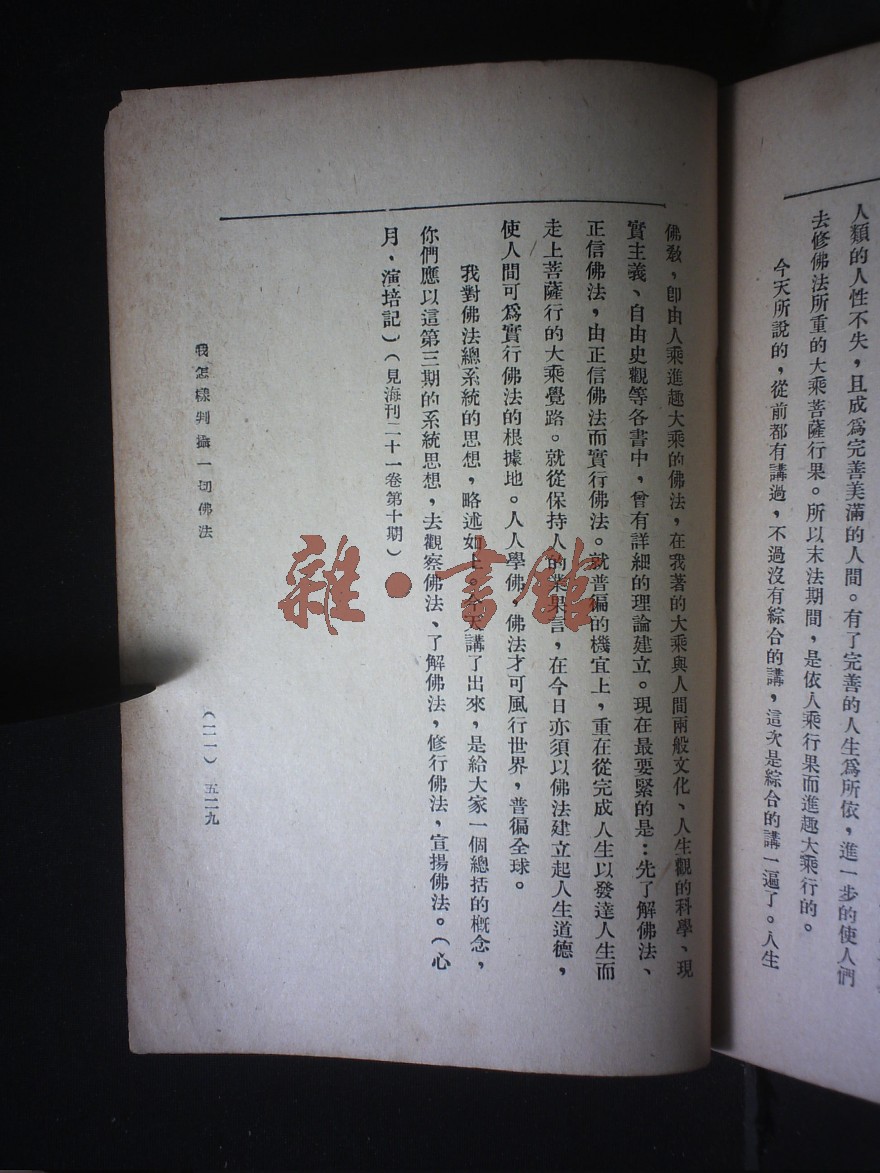 人類的人性不失，且成爲完善美滿的人間。有了完善的人生爲所依，進一步的使人們
去修佛法所重的大乘菩薩行果。所以末法期間，是依人乘行果而進趣大乘行的。
今天所說的，從前都有講過，不過沒有綜合的講，這次是綜合的講一遍了。人生
佛教，卽由人乘進趣大乘的佛法，在我著的大乘與人間兩般文化、人生觀的科學、現
實主義、自由史觀等各書中，曾有詳細的理論建立。現在最要緊的是：先了解佛法、
正信佛法，由正信佛法而實行佛法。就普徧的機宜上，重在從完成人生以發達人生而
走上菩薩行的大乘覺路。就從保持人的業果言，在今日亦須以佛法建立起人生道德，
使人間可爲實行佛法的根據地。人人學佛，佛法才可風行世界，普徧全球。
我對佛法總系統的思想，略述如上。今天講了出來，是給大家一個總括的槪念，
你們應以這第三期的系統思想，去觀察佛法、了解佛法，修行佛法，宣揚佛法。（心
月、演培記）（見海刊二十一卷第十期）
我怎樣判攝一切佛法
（一一）五二九
雜·書館